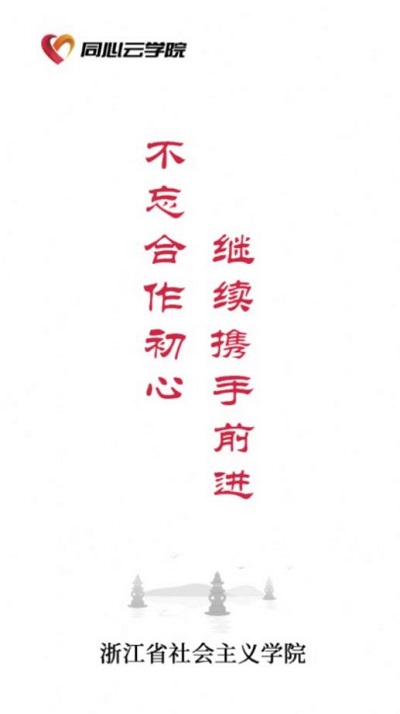 同心云学院
不忘合作初心
继续携手前进
浙江省社会主义学院